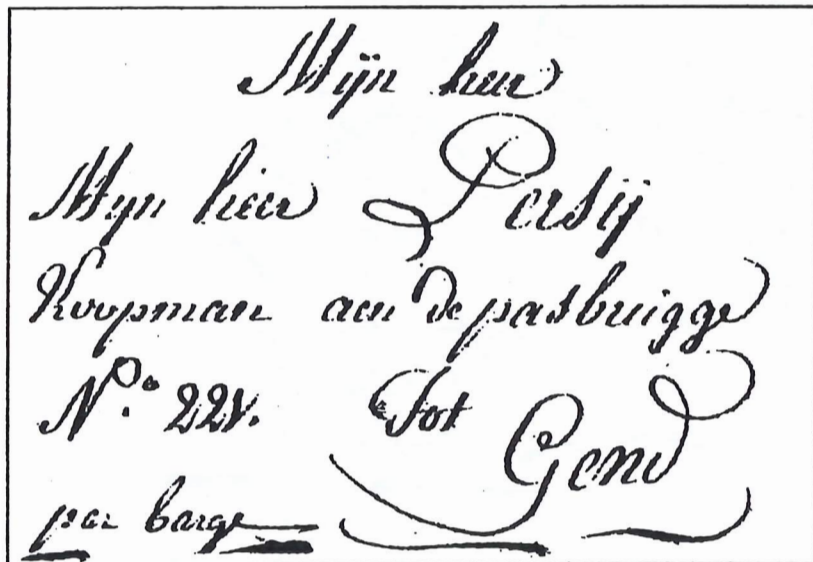 Mijn heer
Mijn heer Persij
Koopman aen de pasbrugge
N.º 221. Tot Gend
par barge